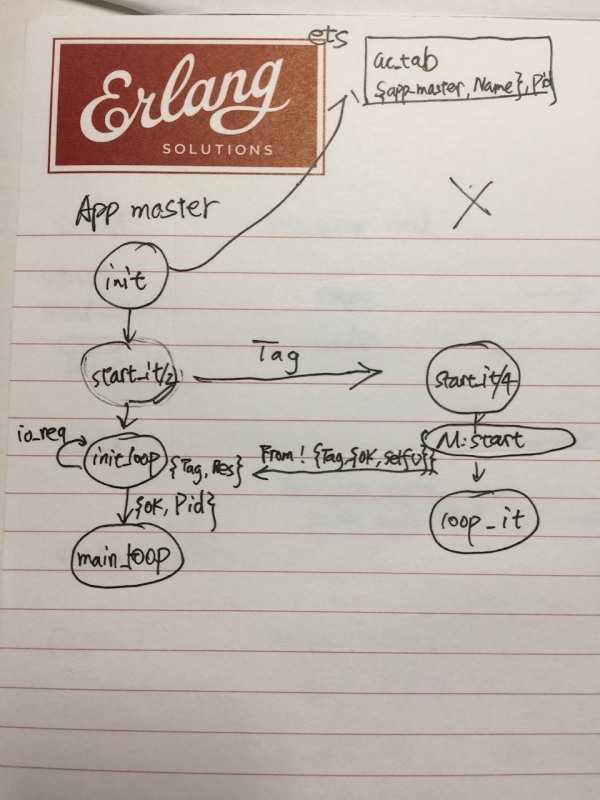 ets
Erlang
SOLUTIONS
ac_tab
{app_master, Name}, Pid
App master
X
init
start_it/2
Tag
start_it/4
io_req
init_loop
{Tag, Res}
From ! {Tag, {ok, self()}}
M:start
{ok, Pid}
loop_it
main_loop